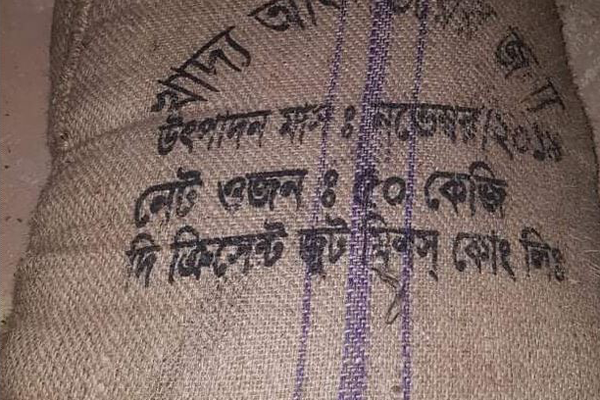 খাদ্য অধি জন্য
উৎপাদন মাস : নভেম্বর/২০১৯
নেট ওজন : ৫০ কেজি
দি ক্রিসেন্ট জুট মিলস্ কোং লিঃ